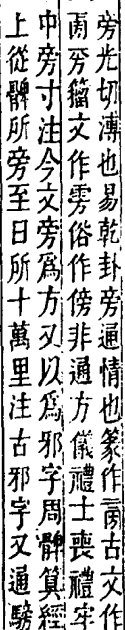 旁光切溥也易乾卦旁通情也篆作㫄古文作
雱籀文作雱俗作傍非通方儀禮士喪禮牢
中旁寸注今文旁爲方又以爲邪字周髀算經
上從髀所旁至日所十萬里注古邪字又通騯